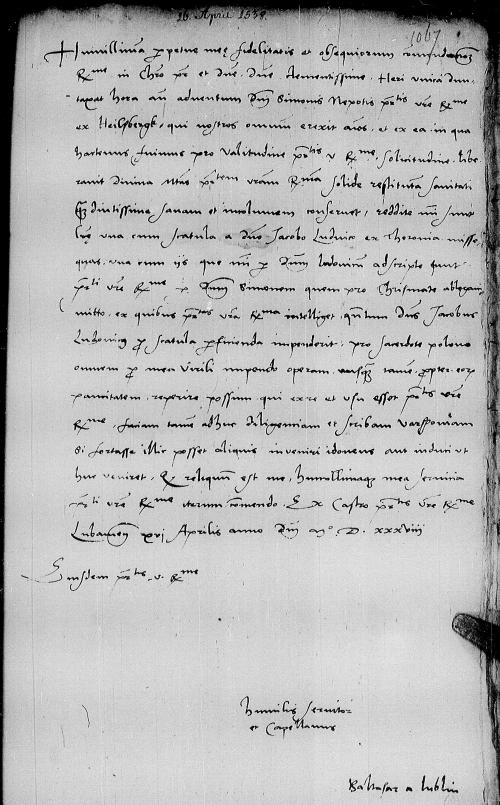 16. April 1538.
1067
Humillimam perpetue meę fidelitatis et obsequiorum
Rme in Chro pr et dne, dne clementissime. Heri unica dun-
taxat hora an adventum Dni Simonis Nepotis prtis vre Rme
ex Heilsbergk, qui nostros omnium erexit aios, et ex ea in qua
hactenus fuimus pro valitudine prtis v Rme, solicitudine libe
ravit divina Mtas prtem vram Rmam solide restitutam sanitati
diutissime sanam et incolumem conservet, reddite mi sunt
lre una cum scatula a dno Jacobo Ludvico ex Thoronia misse,
quas una cum iis que mi per Dnum ludovicum adscripte sunt
prti vre Rme per Dnum Simonem quem pro Chrismate
mitto, ex quibus prtas vra Rma intelliget, quantum Dns Jacobus
Ludovicus pro scatula perficienda impenderit, pro sacerdote polono
omnem pro mea virili impendo operam, tamen propter eorum
paucitatem reperire possum qui ex re et usu esset prtis vre
Rme, faciam tamen adhuc diligenciam et scribam Varssoviam
Si fortasse illic posset aliquis inveniri idoneus aut induci ut
huc veniret, reliquum est me, humillimaque mea servicia
prti vre Rme iterum comendo. Ex Castro prtis vre Rme
xvj Aprilis anno Dni Mo. D. xxxviii
Eiusdem prtis v. Rme
humilis servitor
et Capellanus
Baltasar a lublin